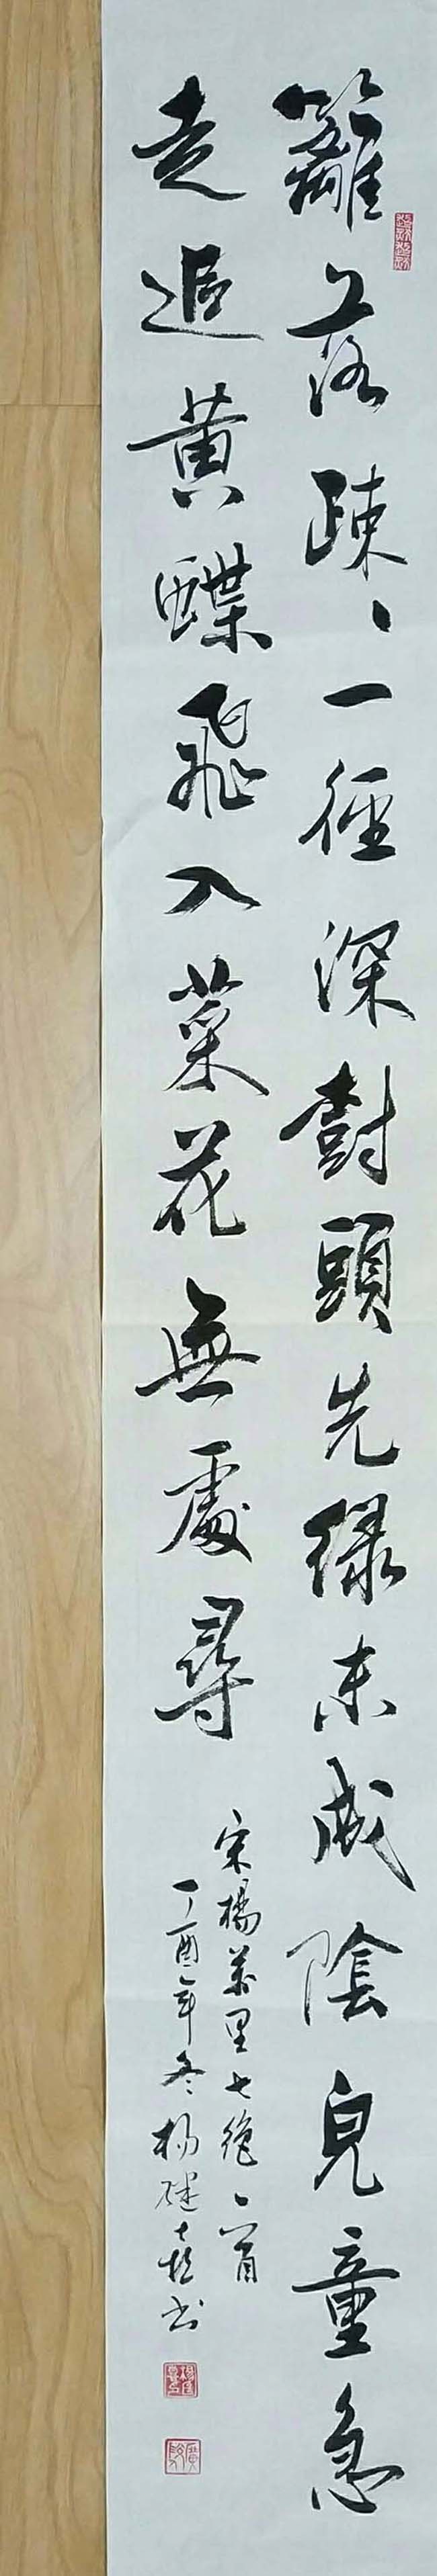 籬落疎丶一徑深樹頭先綠未成陰兒童急
走追黃蝶飛入菜花無處尋
宋楊萬里七絕一首
丁酉年冬楊喜书